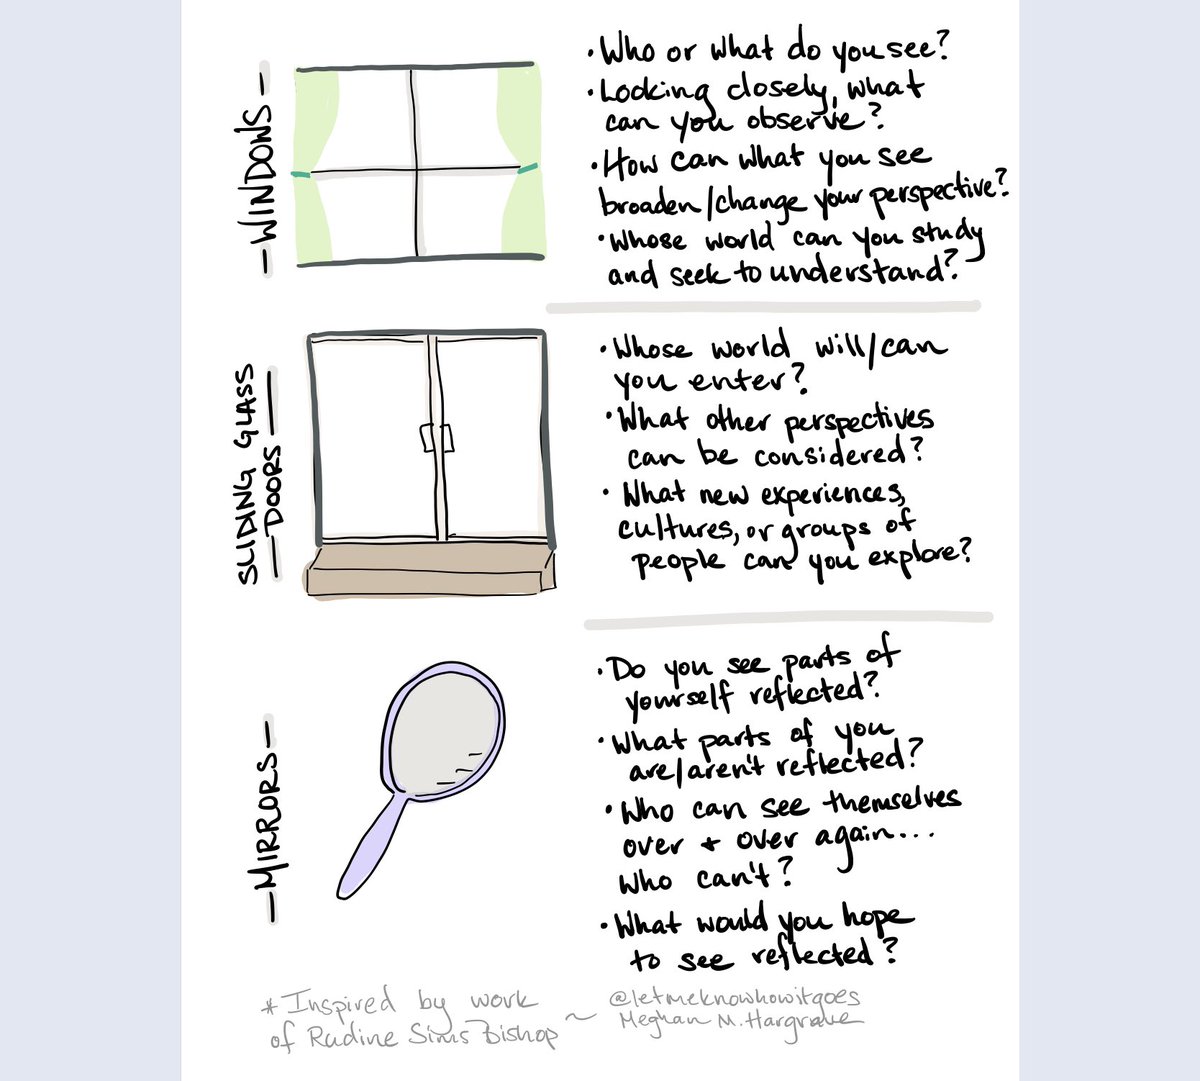 —WINDOWS—
• Who or what do you see?
• Looking closely, what
can you observe?
• How can what you see
broaden/change your perspective?
• Whose world can you study
and seek to understand?
SLIDING GLASS
—DOORS—
• Whose world will/can
you enter?
• What other perspectives
can be considered?
• What new experiences,
cultures, or groups of
people can you explore?
—MIRRORS—
• Do you see parts of
yourself reflected?
• What parts of you
are/aren't reflected?
• Who can see themselves
over + over again...
Who can't?
• What would you hope
to see reflected?
*Inspired by work
of Rudine Sims Bishop ~
@letmeknowhowitgoes
Meghan M. Hargrave